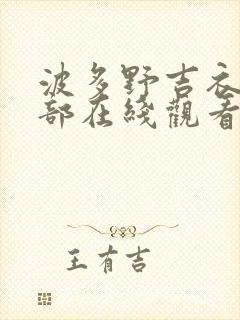 波多野吉衣
部在綫觀看
王有吉